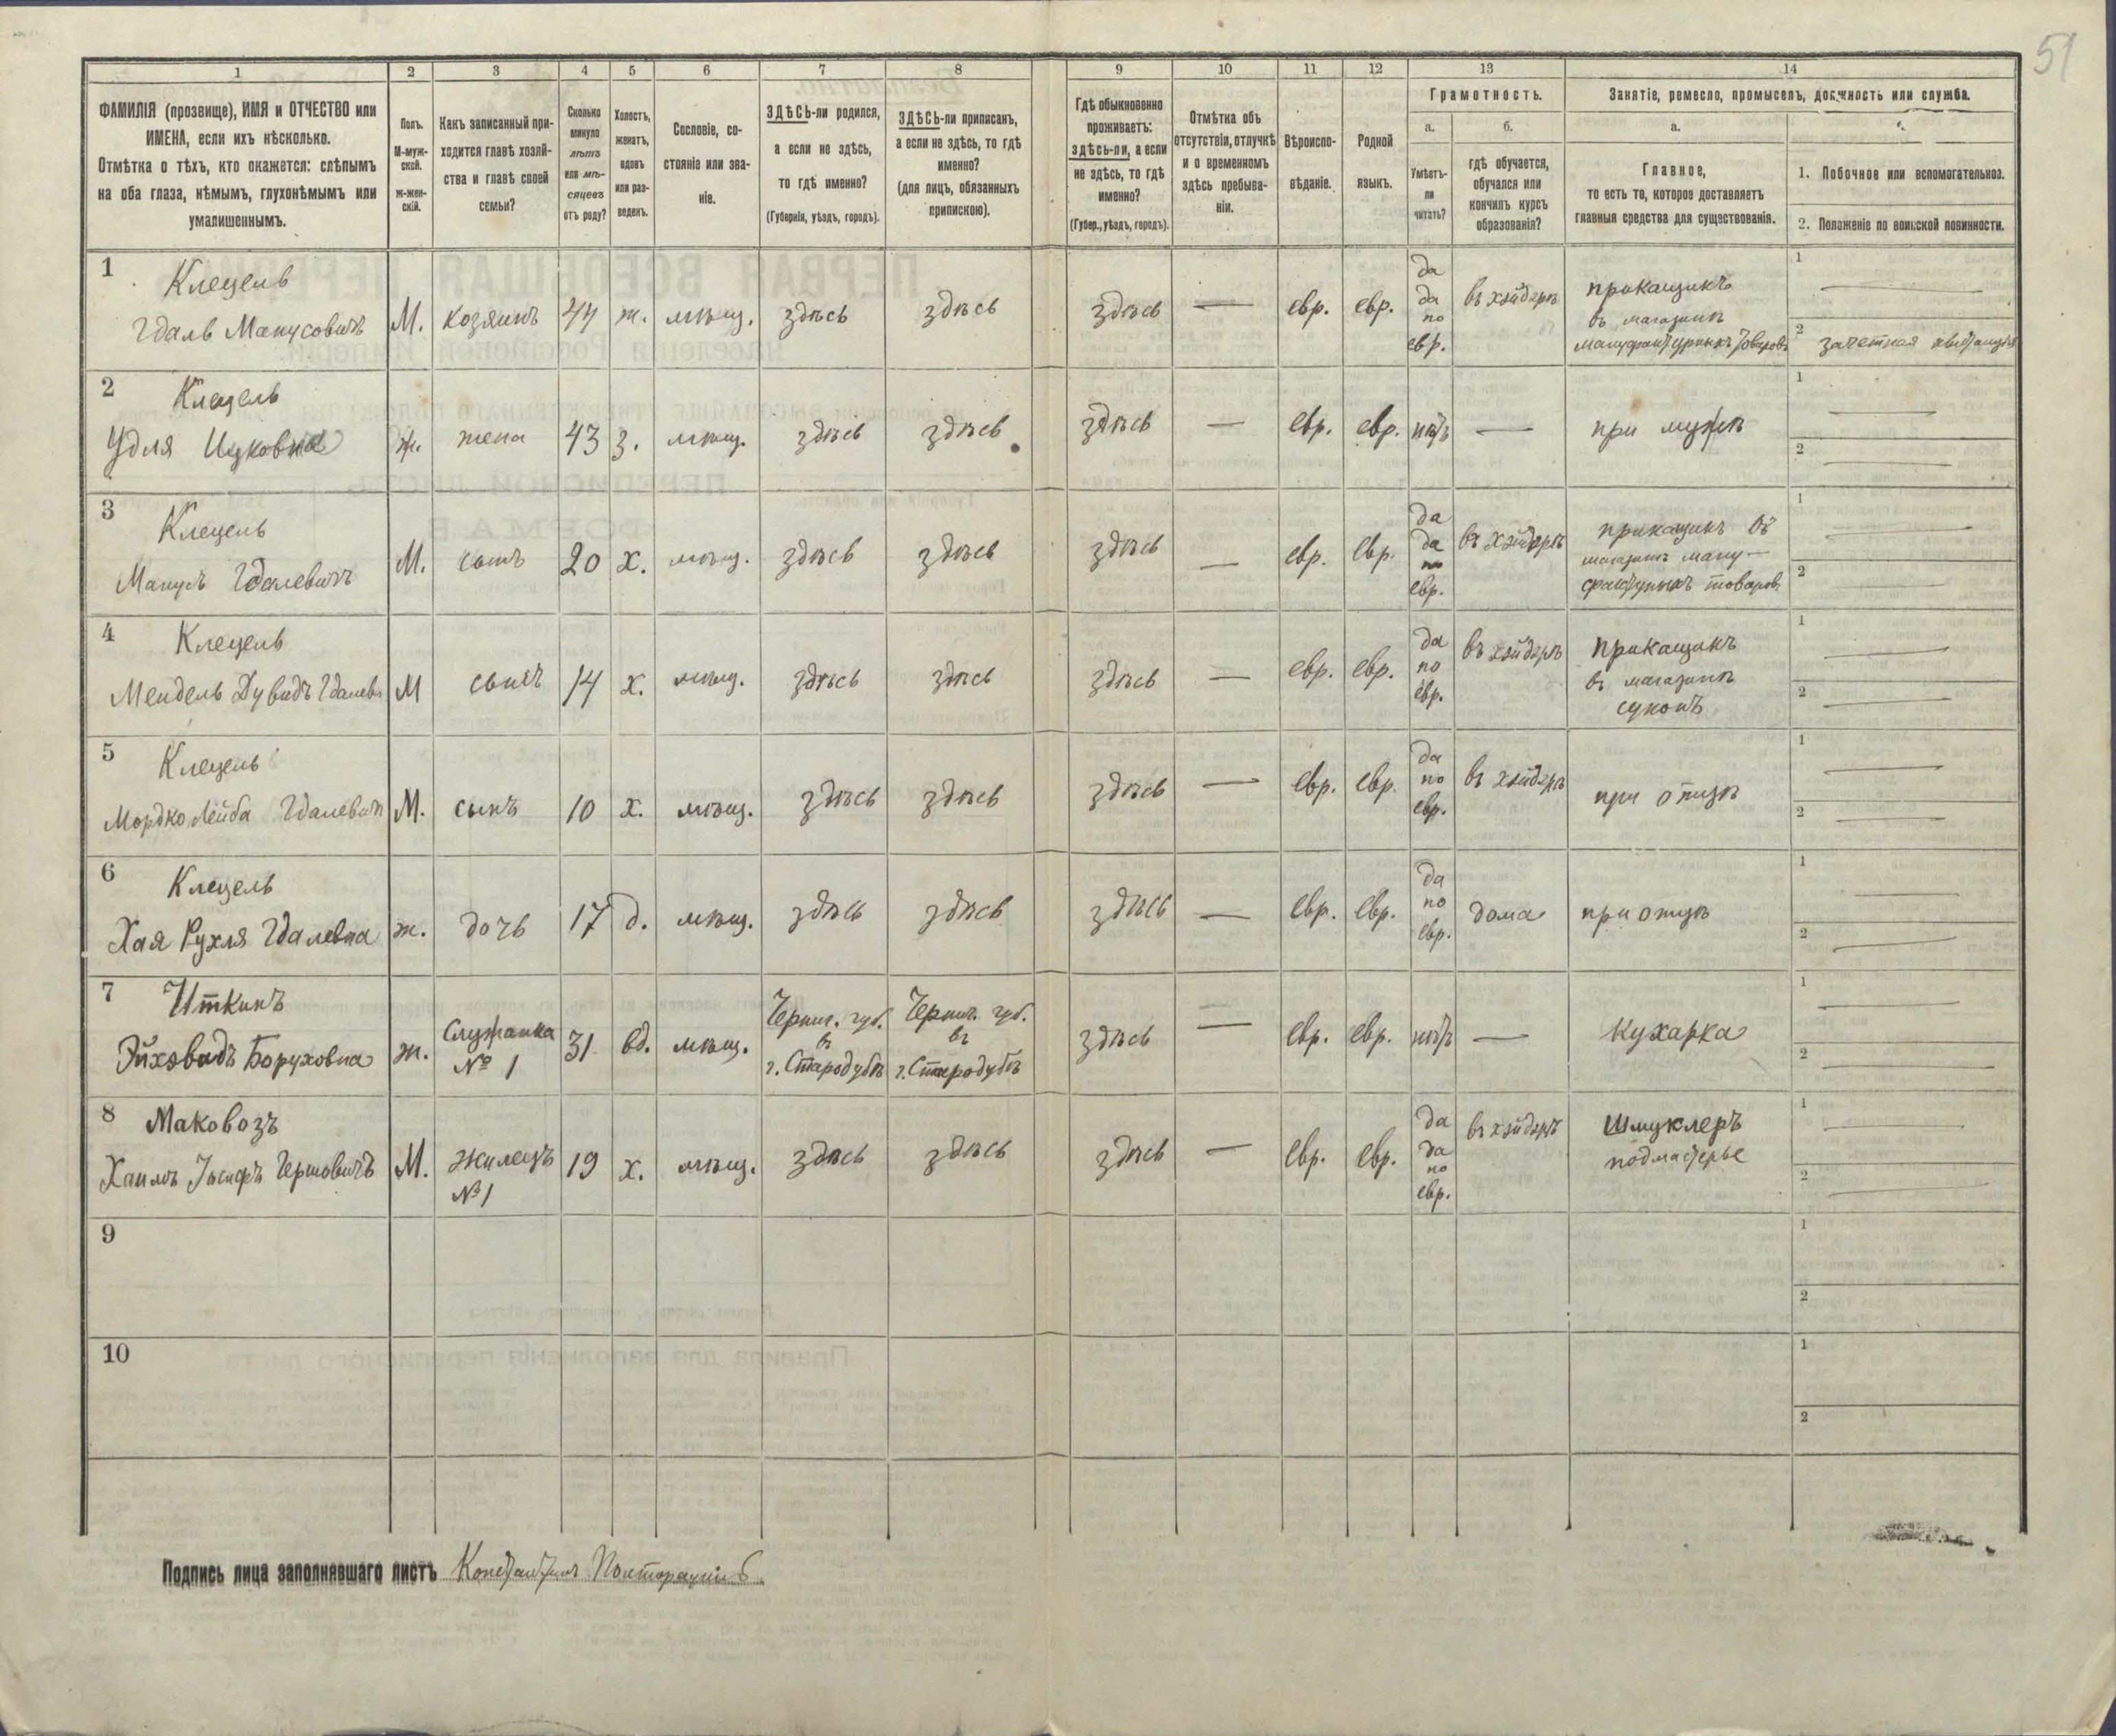 51
1 2 3 4 5 6 7 8 9 10 11 12 13 14
ФАМИЛІЯ (прозвище), ИМЯ и ОТЧЕСТВО или
ИМЕНА, если ихъ нѣсколько.
Отмѣтка о тѣхъ, кто окажется: слѣпымъ
на оба глаза, нѣмымъ, глухонѣмымъ или
умалишеннымъ.
Полъ.
М-муж-
ской.
ж-жен-
скій.
Какъ записанный при-
ходится главѣ хозяй-
ства и главѣ своей
семьи?
Сколько
минуло
лѣтъ
или мѣ-
сяцевъ
отъ роду?
Холостъ,
женатъ,
вдовъ
или раз-
веденъ.
Сословіе, со-
стояніе или зва-
ніе.
ЗДѢСЬ-ли родился,
а если не здѣсь,
то гдѣ именно?
(Губернія, уѣздъ, городъ).
ЗДѢСЬ-ли приписанъ,
а если не здѣсь, то гдѣ
именно?
(для лицъ, обязанныхъ
припискою).
Гдѣ обыкновенно
проживаетъ:
здѣсь-ли, а если
не здѣсь, то гдѣ
именно?
(Губер., уѣздъ, городъ).
Отмѣтка объ
отсутствіи, отлучкѣ
и о временномъ
здѣсь пребыва-
ніи.
Вѣроиспо-
вѣданіе.
Родной
языкъ.
Грамотность.
а.
Умѣетъ-
ли
читать?
б.
гдѣ обучается,
обучался или
кончилъ курсъ
образованія?
Занятіе, ремесло, промыселъ, должность или служба.
а.
Главное,
то есть то, которое доставляетъ
главныя средства для существованія.
1. Побочное или вспомогательноз.
2. Положеніе по воинской повинности.
1
Клецель
Гдаль Манусовичъ
М.
хозяинъ
44
ж.
мѣщ.
здѣсь
здѣсь
здѣсь
—
евр.
евр.
да
да
по
евр.
въ хэйдерѣ
прикащикъ
въ магазинѣ
мануфактурныхъ товаровъ
1
2 зачетная квитанція
2
Клецель
Удля Ицковна
ж.
жена
43
з.
мѣщ.
здѣсь
здѣсь
здѣсь
—
евр.
евр.
нѣтъ
—
при мужѣ
1
2
3
Клецель
Манусъ Гдалевичъ
М.
сынъ
20
х.
мѣщ.
здѣсь
здѣсь
здѣсь
—
евр.
евр.
да
да
по
евр.
въ хэйдерѣ
прикащикъ въ
магазинѣ ману-
фактурныхъ товаров.
1
2
4
Клецель
Мендель Дувидъ Гдалев.
М
сынъ
14
х.
мѣщ.
здѣсь
здѣсь
здѣсь
—
евр.
евр.
да
по
евр.
въ хэйдерѣ
прикащикъ
въ магазинѣ
суконъ
1
2
5
Клецель
Мордко Лейба Гдалевич
М.
сынъ
10
х.
мѣщ.
здѣсь
здѣсь
здѣсь
—
евр.
евр.
да
по
евр.
въ хэйдерѣ
при отцѣ
1
2
6
Клецель
Хая Рухля Гдалевна
ж.
дочь
17
д.
мѣщ.
здѣсь
здѣсь
здѣсь
—
евр.
евр.
да
по
евр.
дома
при отцѣ
1
2
7
Иткинъ
Эйховадъ Боруховна
ж.
Служанка
№ 1
31
вд.
мѣщ.
Черниг. губ.
въ
г. Стародубѣ
Черниг. губ.
въ
г. Стародубѣ
здѣсь
—
евр.
евр.
нѣтъ
—
Кухарка
1
2
8
Маковозъ
Хаимъ Іосифъ Гершовичъ
М.
жилецъ
№ 1
19
х.
мѣщ.
здѣсь
здѣсь
здѣсь
—
евр.
евр.
да
да
по
евр.
въ хэйдерѣ
Шмуклеръ
подмастерье
1
2
9
1
2
10
1
2
Подпись лица заполнявшаго листъ Константинъ